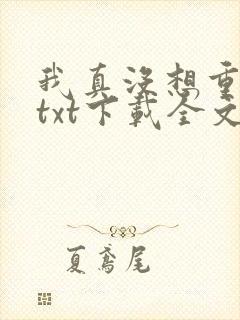 我真没想重
txt下载全文
夏鸢尾